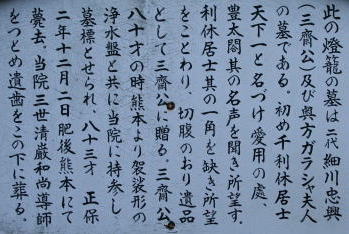 此の燈籠の墓は二代細川忠興
（三齋公）及び與方ガラシャ夫人
の墓である。初め千利休居士
天下一と名づけ愛用の處
豊太閤其の名声を聞き所望す。
利休居士其の一角を缺き所望
をことわり、切腹のおり遺品
として三齋公に贈る。三齋公
八十才の時熊本より袈裟形の
浄水盤と共に当院に特参し
墓標とせられ、八十三才 正保
二年十二月二日肥後熊本にて
薨去。当院三世清巌和尚導師
をつとめ遺歯をこの下に葬る。